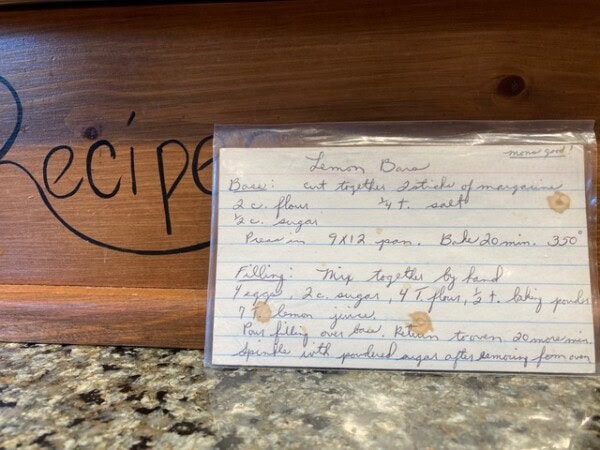 Recipe
mmm good!
Lemon Bars
Base: cut together 2 sticks of margarine
2 c. flour 1/4 t. salt
1/2 c. sugar
Press in 9X12 pan. Bake 20 min. 350°
Filling: Mix together by hand
4 eggs, 2 c. sugar, 4 T. flour, 1/2 t. baking powder
7 T. lemon juice.
Pour filling over base. Return to oven 20 more min.
Sprinkle with powdered sugar after removing from oven